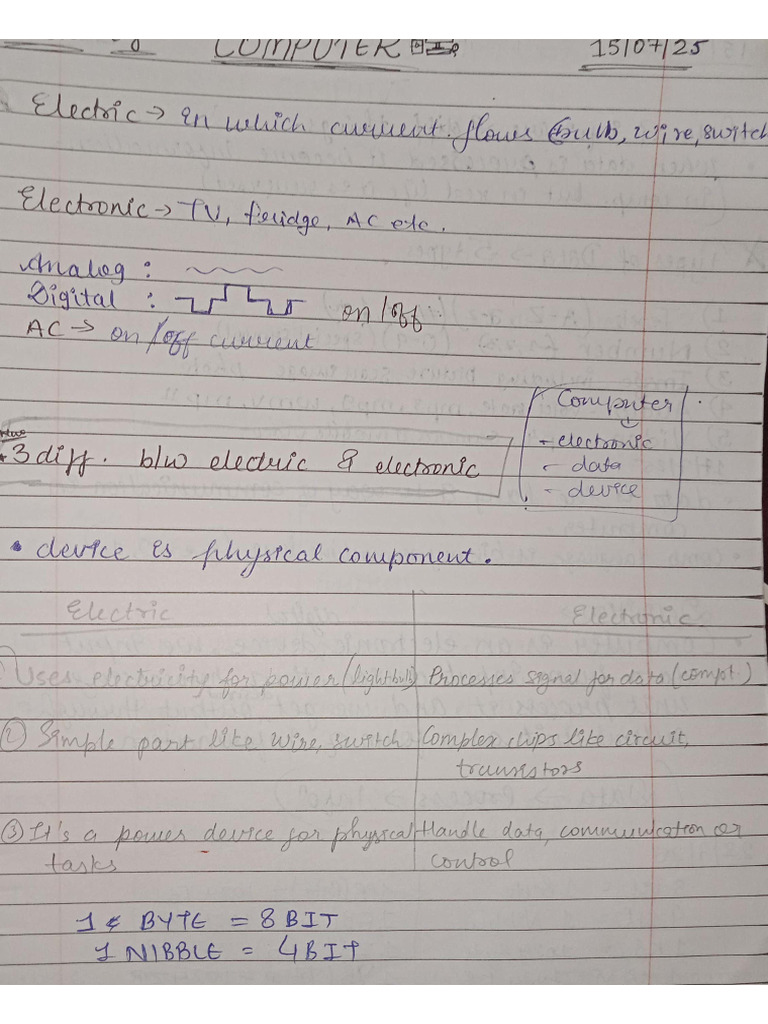 COMPUTER 15/07/25
Electric → In which current flows (bulb, wire, switch
Electronic → TV, fridge, AC etc.
Analog :
Digital : on/off
AC → on/off current
Computer
- electronic
- data
- device
3 diff. b/w electric & electronic
• device is physical component.
Electric Electronic
Uses electricity for power (lightbulb) Processes signal for data (compt.)
② Simple part like wire, switch Complex chips like circuit,
transistors
③ It's a power device for physical Handle data, communication or
tasks control
1 BYTE = 8 BIT
1 NIBBLE = 4 BIT